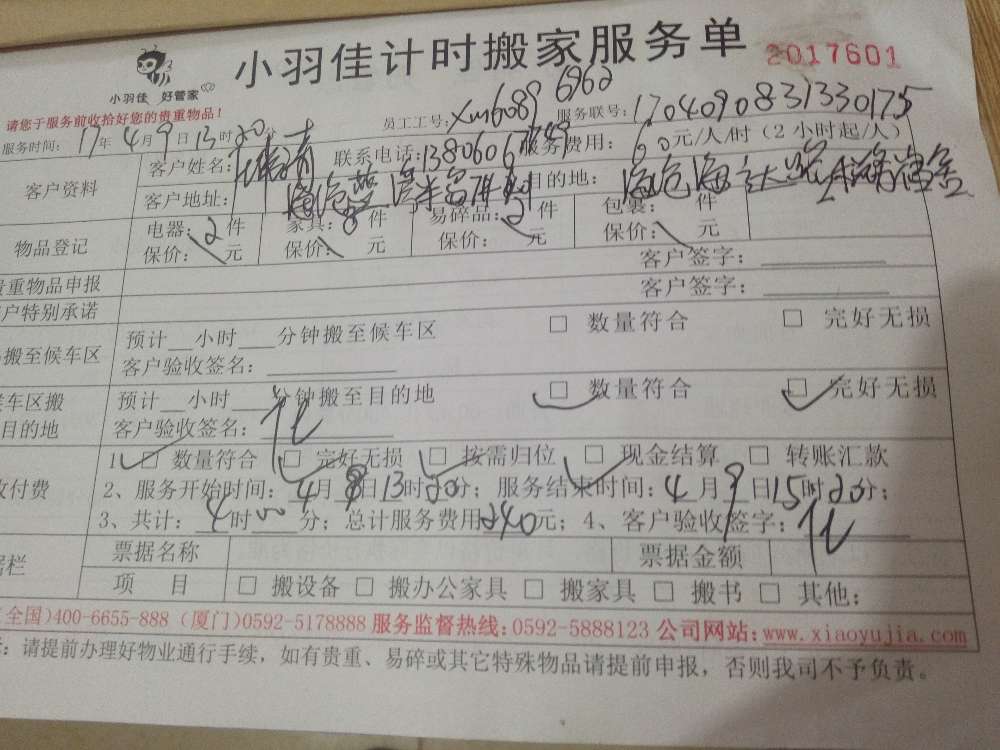 小羽佳计时搬家服务单 2017601
小羽佳 好管家
请您于服务前收拾好您的贵重物品!
员工工号: xm6089 6962 服务联号: 1704090831330175
服务时间: 17年4月9日13时20分
客户资料 客户姓名: 联系电话: 服务费用: 60元/人/时(2小时起/人)
客户地址: 目的地:
物品登记 电器: 2件 家具: 8件 易碎品: 2件 包裹: 件
保价: 元 保价: 元 保价: 元 保价: 元
贵重物品申报 客户签字:
户特别承诺 客户签字:
搬至候车区 预计 小时 分钟搬至候车区 □ 数量符合 □ 完好无损
客户验收签名:
候车区搬 预计 小时 分钟搬至目的地 □ 数量符合 □ 完好无损
目的地 客户验收签名:
1、□ 数量符合 □ 完好无损 □ 按需归位 □ 现金结算 □ 转账汇款
收付费 2、服务开始时间: 4月 日13时20分; 服务结束时间: 4月9日15时20分;
3、共计: 4时00分; 总计服务费用240元; 4、客户验收签字:
据栏 票据名称 票据金额
项 目 □ 搬设备 □ 搬办公家具 □ 搬家具 □ 搬书 □ 其他:
(全国)400-6655-888 (厦门)0592-5178888 服务监督热线:0592-5888123 公司网站:www.xiaoyujia.com
: 请提前办理好物业通行手续,如有贵重、易碎或其它特殊物品请提前申报,否则我司不予负责。